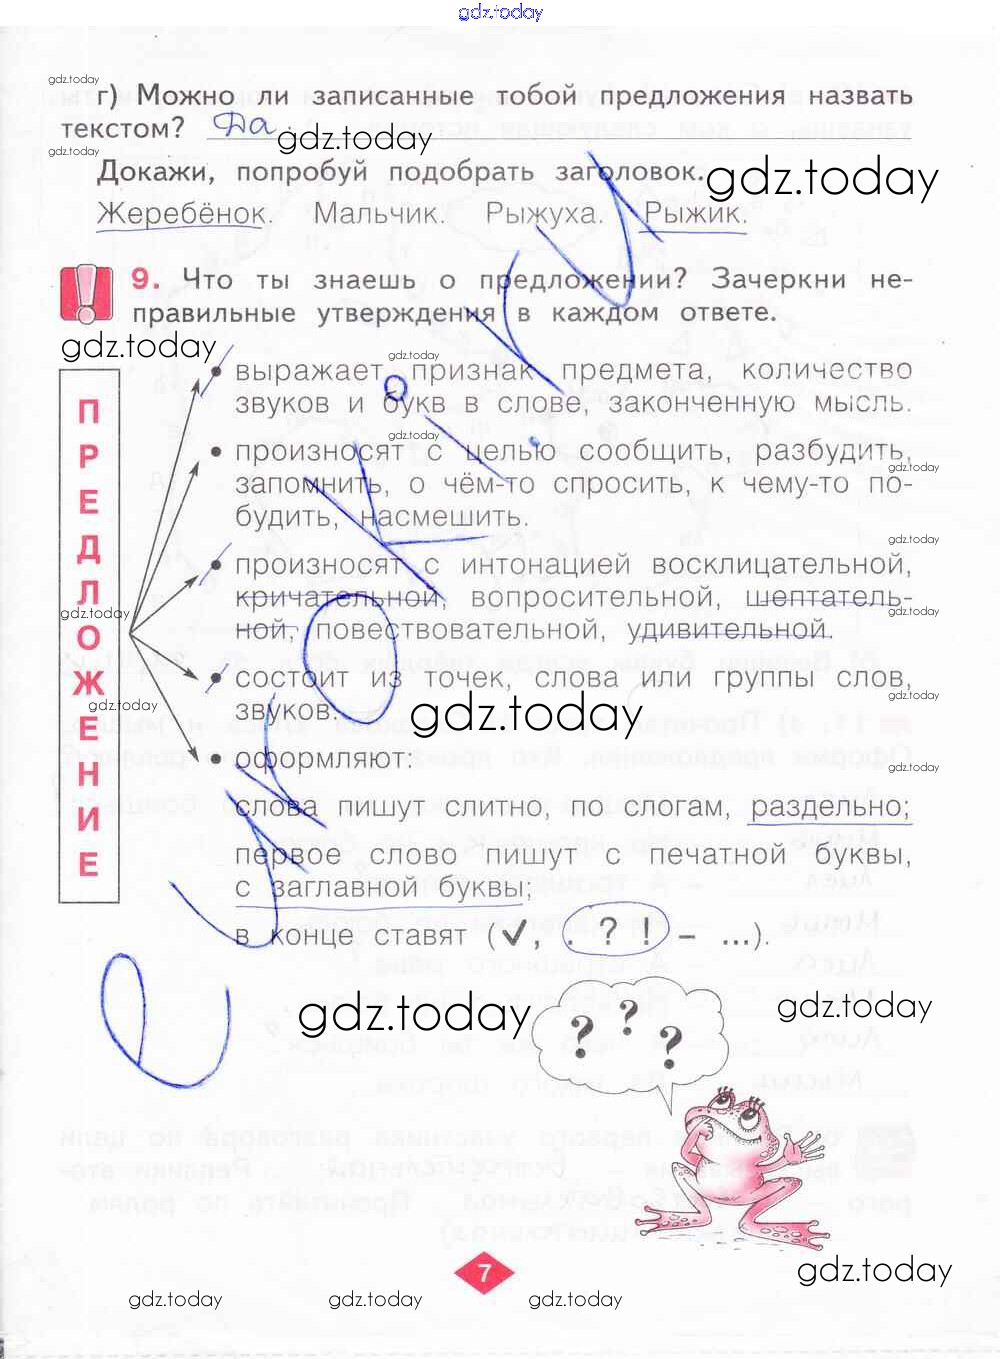 gdz.today
gdz.today
г) Можно ли записанные тобой предложения назвать
текстом? Да.
gdz.today
gdz.today
Докажи, попробуй подобрать заголовок.
gdz.today
Жеребёнок. Мальчик. Рыжуха. Рыжик.
9. Что ты знаешь о предложении? Зачеркни не-
правильные утверждения в каждом ответе.
gdz.today
gdz.today
ПРЕДЛОЖЕНИЕ
• выражает признак предмета, количество
звуков и букв в слове, законченную мысль.
gdz.today
• произносят с целью сообщить, разбудить,
gdz.today
запомнить, о чём-то спросить, к чему-то по-
будить, насмешить.
gdz.today
• произносят с интонацией восклицательной,
кричательной, вопросительной, шептатель-
gdz.today
gdz.today
ной, повествовательной, удивительной.
• состоит из точек, слова или группы слов,
gdz.today
gdz.today
звуков.
gdz.today
• оформляют:
gdz.today
слова пишут слитно, по слогам, раздельно;
первое слово пишут с печатной буквы,
с заглавной буквы;
в конце ставят (✓, . ? ! – ...).
gdz.today
gdz.today
? ? ?
gdz.today
7
gdz.today
gdz.today
gdz.today